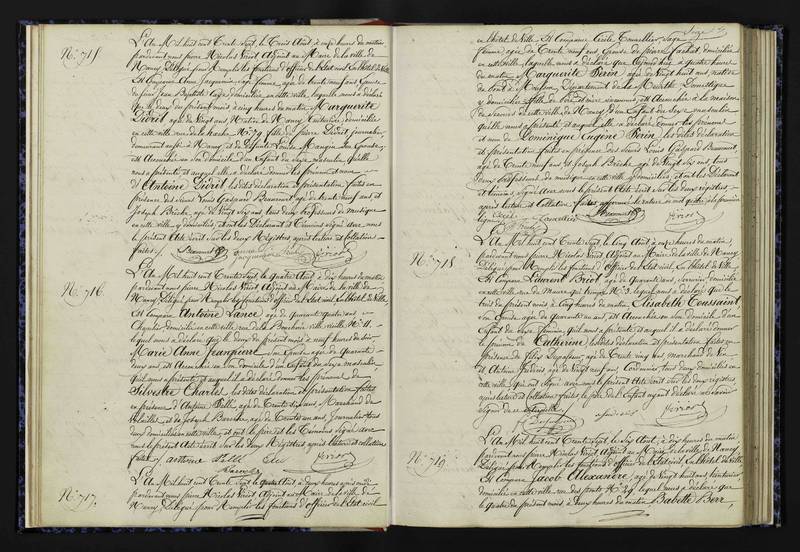 N.º 715
L'An Mil huit cent trente sept, le trois Août, à onze heures du matin
pardevant nous Pierre Nicolas Noirot Adjoint au Maire de la ville de
Nancy, Délégué pour Remplir les fonctions d'officier de l'Etat civil, En l'hôtel de Ville
Est Comparue Anne Jacquinin Sage femme, agée de trente neuf ans Epouse
en cette ville, laquelle nous a déclaré
que le deux du présent mois à cinq heures du matin Marguerite
Didiot agée de vingt ans Native de Nancy domiciliée
en cette ville rue de la hache N.º 79 fille de Didiot, journalier,
demeurant à Nancy et de Défunte Louise Mangin Son Epouse,
est Accouchée en Son Domicile d'un Enfant du Sexe masculin, qu'elle
nous a présenté et auquel elle a déclaré donner les prénoms et nom
d'Antoine Didiot, les dites déclaration et présentation faites en
présence des Sieurs Louis Gaspard Beaumont agé de trente neuf ans et
Joseph Briche, agé de Vingt Six ans, tous deux Professeurs de musique
en cette ville y domiciliés, et ont les Déclarant et Témoins signé avec nous
le présent Acte écrit sur les deux Registres, après lecture et Collation
faites
N.º 716.
L'An Mil huit cent Trente Sept, le quatre Août, à dix heures du matin
pardevant nous Pierre Nicolas Noirot Adjoint au Maire de la ville de
Nancy, Délégué pour Remplir les fonctions d'officier de l'Etat civil, En l'hôtel de Ville
Est Comparu Antoine Lance agé de quarante quatre ans
Chapelier domicilié en cette ville, rue de la Boucherie ville vieille, N.º 11.
lequel nous a déclaré, que le deux du présent mois à neuf heures du soir
Marie Anne Jeanpierre Son Epouse agée de quarante
ans, est Accouchée en Son domicile d'un Enfant du Sexe masculin
qu'il nous a présenté et auquel il a déclaré donner les prénoms de
Silvestre Charles, les dites déclaration et présentation faites
en présence d'Antoine Pelli agé de Trente six ans, Marchand de
et de Joseph Bouche, agé de Trente un ans journalier tous
deux domiciliés en cette ville, et ont le père et les témoins signé avec
nous le présent Acte écrit sur les deux Registres, après lecture et collation
faites
antoine Pelli
N.º 717.
L'An Mil huit cent Trente Sept, le quatre Août à deux heures après midi
pardevant nous Pierre Nicolas Noirot Adjoint au Maire de la ville de
Nancy, Délégué pour Remplir les fonctions d'officier de l'Etat civil
en l'hôtel de Ville, Est Comparue Cécile Sage
femme agée de Trente neuf ans, Epouse de Pierre domiciliée
en cette ville, laquelle nous a déclaré que Aujourd'hui à quatre heures
du matin, Marguerite Perin agée de Vingt huit ans native
de Pont à Mousson, Département de la Meurthe, Domestique
y domiciliée est Accouchée à la maison
de Secours de cette ville de Nancy, d'un Enfant du Sexe masculin
qu'elle nous a présenté et auquel elle a déclaré donner les prénoms
et nom de Dominique Eugène Perin, les dites déclaration
et présentation faites en présence des Sieurs Louis Gaspard Beaumont,
agé de Trente neuf ans et Joseph Briche, agé de Vingt Six ans, tous
deux Professeurs de musique en cette ville y domiciliés, et ont les Déclarant
et témoins, signé avec nous le présent Acte écrit sur les deux registres,
après lecture et Collation faites
N.º 718
L'An Mil huit cent Trente Sept, le Cinq Août, à onze heures du matin,
pardevant nous Pierre Nicolas Noirot Adjoint au Maire de la ville de Nancy,
Délégué pour Remplir les fonctions d'officier de l'Etat civil, En l'hôtel de Ville
Est Comparu Laurent Briot agé de quarante ans, domicilié
en cette ville, rue N.º 3. lequel nous a déclaré que le
trois du présent mois, à Cinq heures du matin, Elisabeth Toussaint
Son Epouse agée de quarante un ans, est Accouchée en Son domicile d'un
Enfant du Sexe féminin, qu'il nous a présenté et auquel il a déclaré donner
le prénom de Catherine les dites déclaration et présentation faites en
présence de Felix agé de Trente cinq ans marchand de Vin
et Antoine agé de Vingt neuf ans Cordonnier, tous deux domiciliés en
cette ville, qui ont signé avec nous le présent Acte écrit sur les deux registres,
après lecture et Collation faites, le père de l'Enfant ayant déclaré ne savoir
signer de ce interpellé
N.º 719.
L'An Mil huit cent Trente Sept, le Six Août, à dix heures du matin
pardevant nous Pierre Nicolas Noirot Adjoint au Maire de la ville de Nancy,
Délégué pour Remplir les fonctions d'officier de l'Etat civil, En l'hôtel de Ville
Est Comparu Jacob Alexandre, agé de Vingt huit ans,
domicilié en cette ville, rue des ponts N.º 29 lequel nous a déclaré que
le quatre du présent mois, à deux heures du matin Babette Berr,